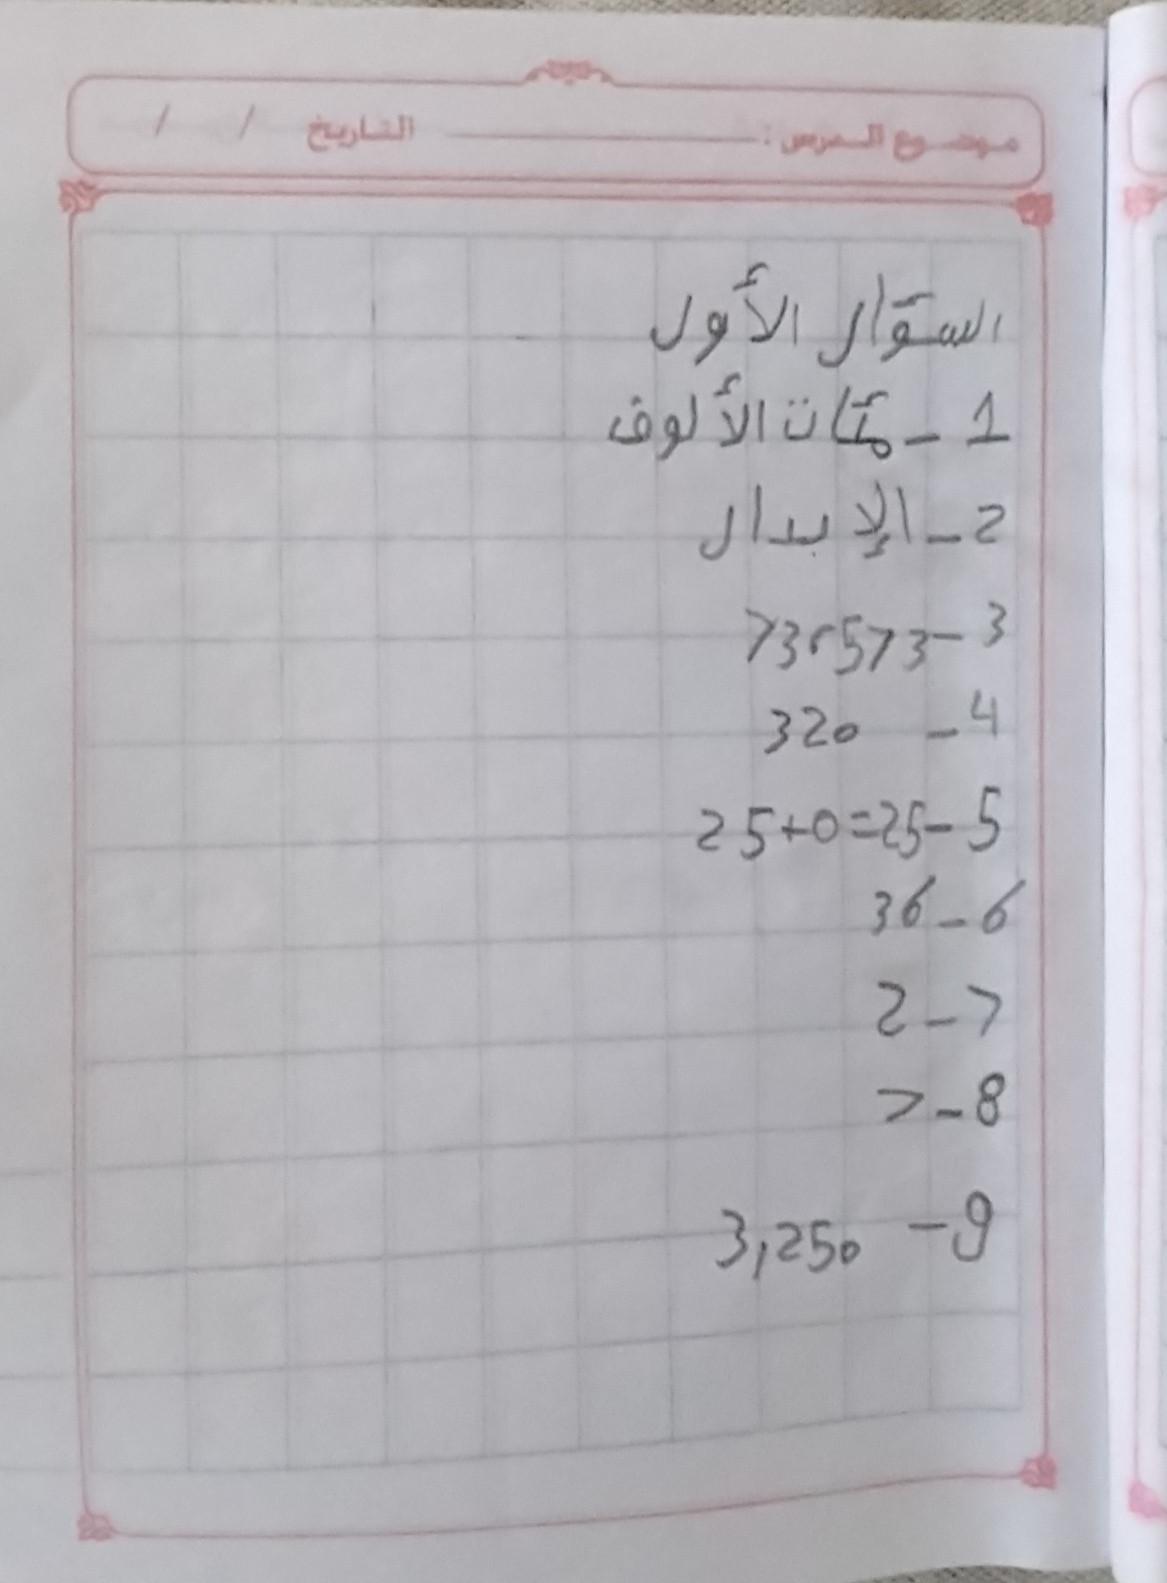 موضوع الدرس : التاريخ / /
السؤال الأول
1 - مئات الألوف
2 - الإبدال
3 - 73,573
4 - 320
5 - 25+0=25
6 - 36
7 - 2
8 - >
9 - 3,250